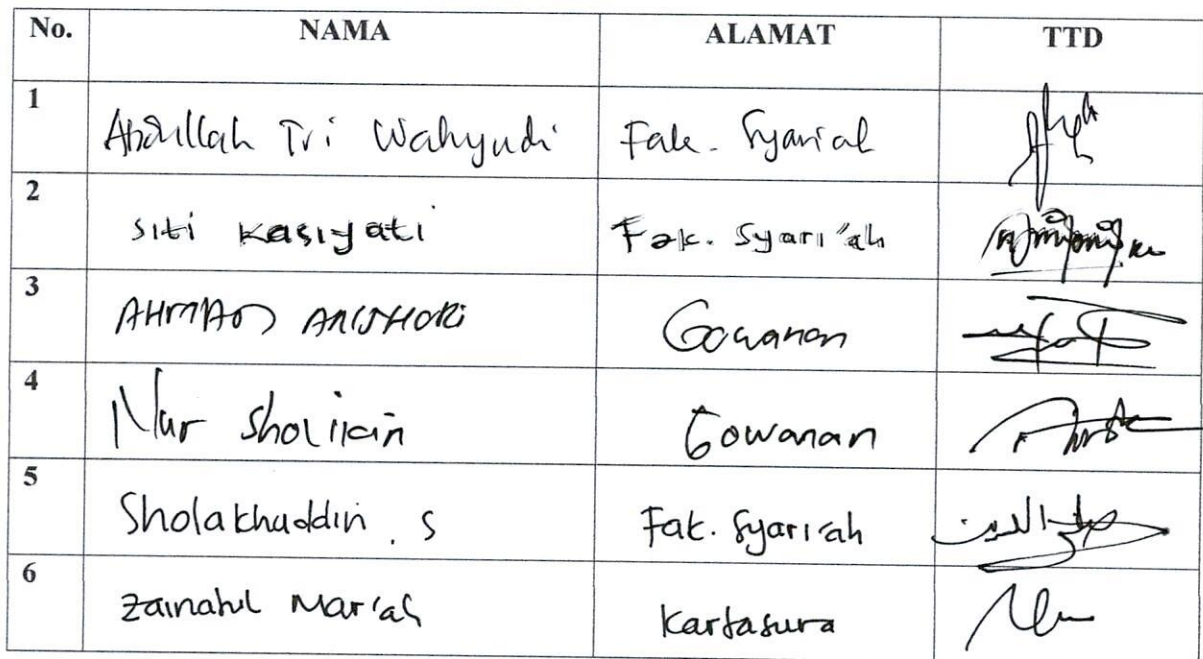 No. NAMA ALAMAT TTD
1 Abdullah Tri Wahyudi Fak. Syariah
2 Siti Kasiyati Fak. Syari'ah
3 AHMAD Gowanan
4 Nur Sholikin Gowanan
5 Sholakhuddin . S Fak. Syari'ah صلاح الدين
6 Zainatul Mar'ah Kartasura